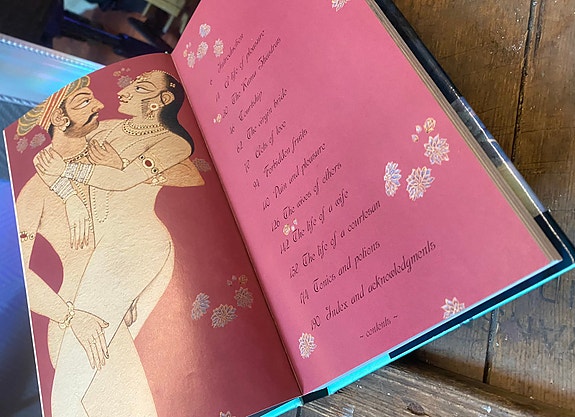 Introduction
A life of pleasure
The Kama Shastras
Courtship
62 The virgin bride
Acts of love
94 Forbidden fruits
110 Pain and pleasure
126 The wives of others
142 The life of a wife
158 The life of a courtesan
174 Tonics and potions
190 Index and acknowledgments
~ contents ~